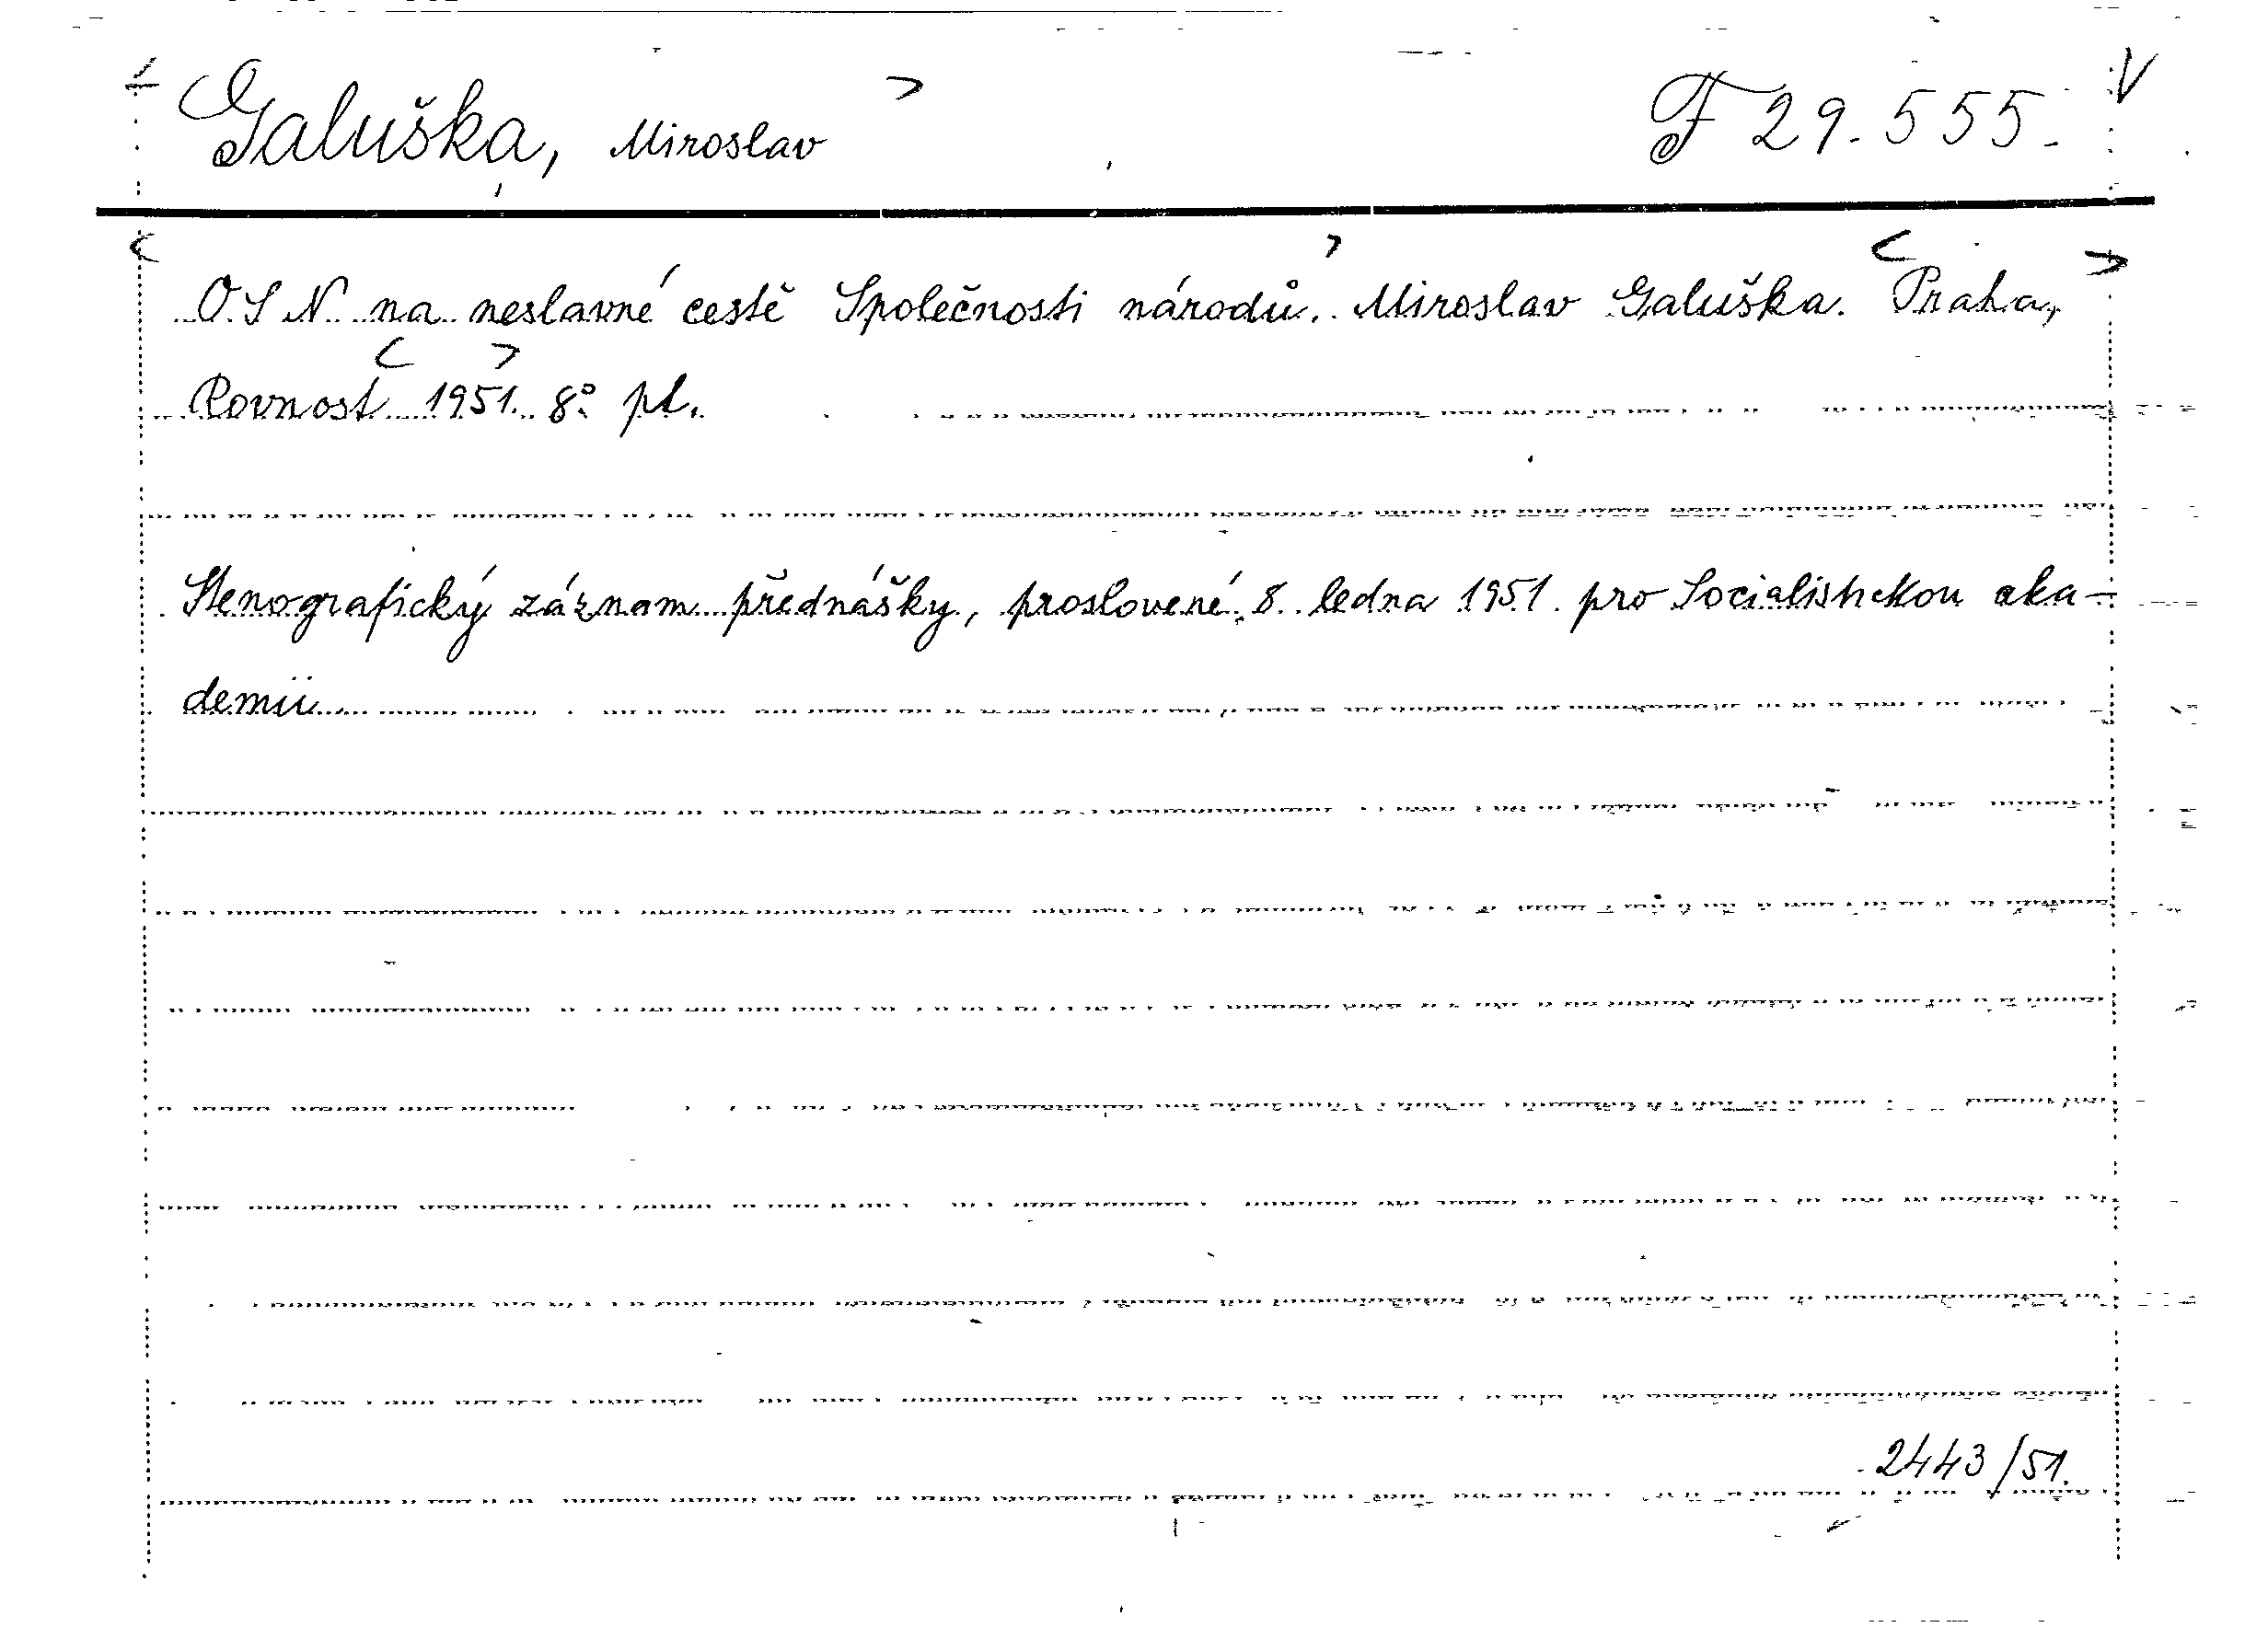 Galuška, Miroslav F 29.555.
OSN na neslavné cestě Společnosti národů. Miroslav Galuška. Praha,
Rovnost 1951. 8° pl.
Stenografický záznam přednášky, proslovené 8. ledna 1951 pro Socialistickou aka-
demii
2443/51.